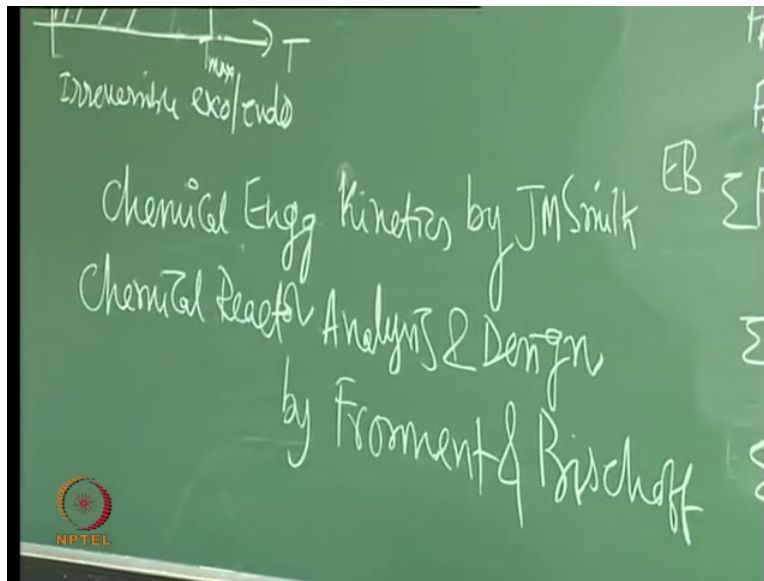 Tmax T
Irreversible exo/endo
Chemical Engg Kinetics by JM Smith
EB
Chemical Reactor Analysis & Design
by Froment & Bischoff
NPTEL